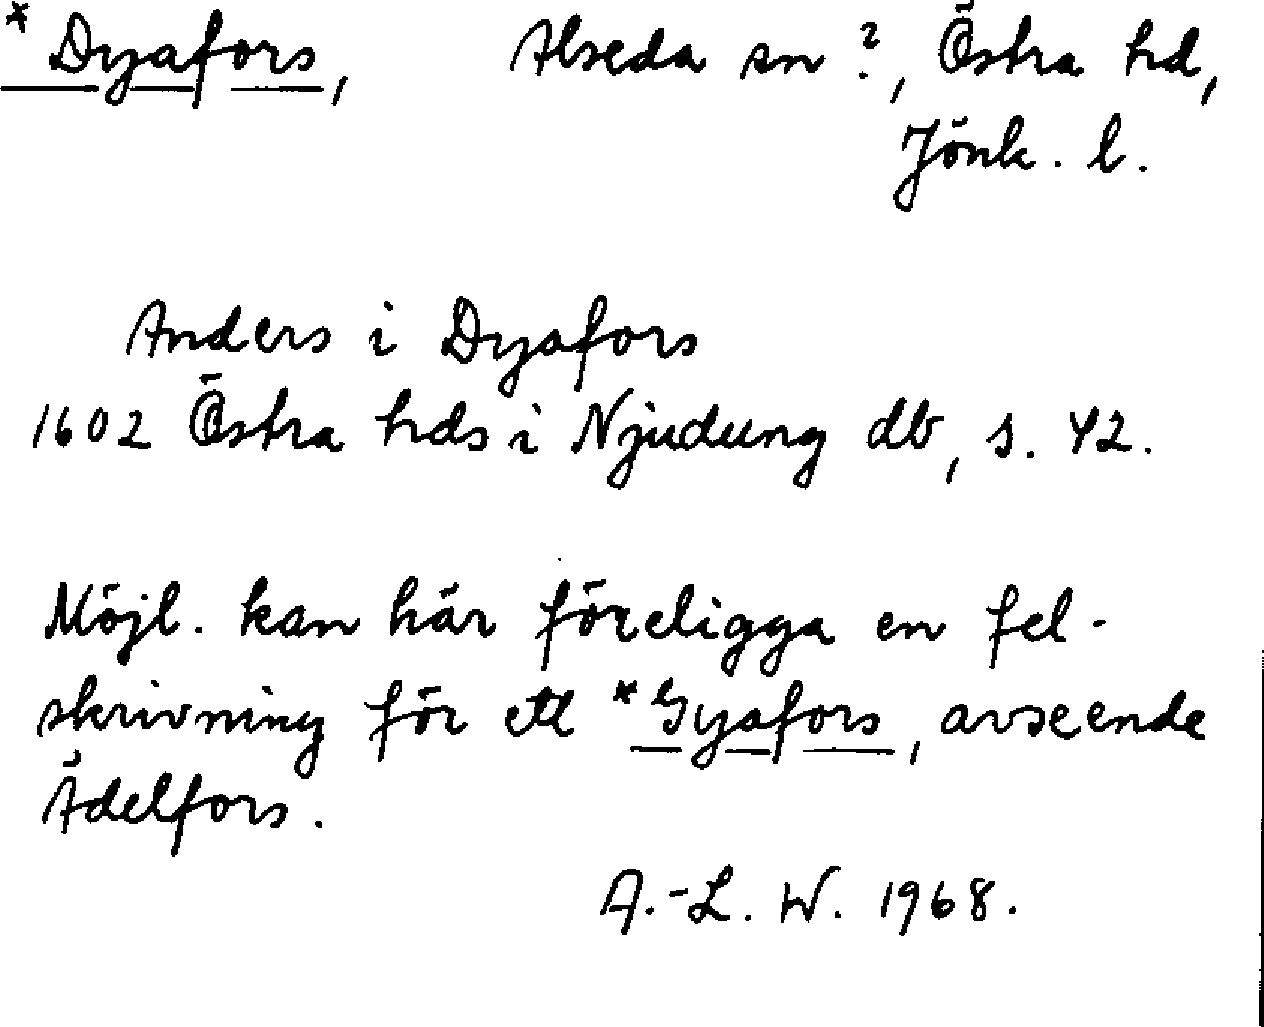 * Dyafors, Alseda sn ?, Östra hd,
Jönk. l.
Anders i Dyafors
1602 Östra hds i Njudung db, s. 42.
Möjl. kan här föreligga en fel-
skrivning för ett *Gyafors, avseende
Ädelfors.
A.-L. W. 1968.